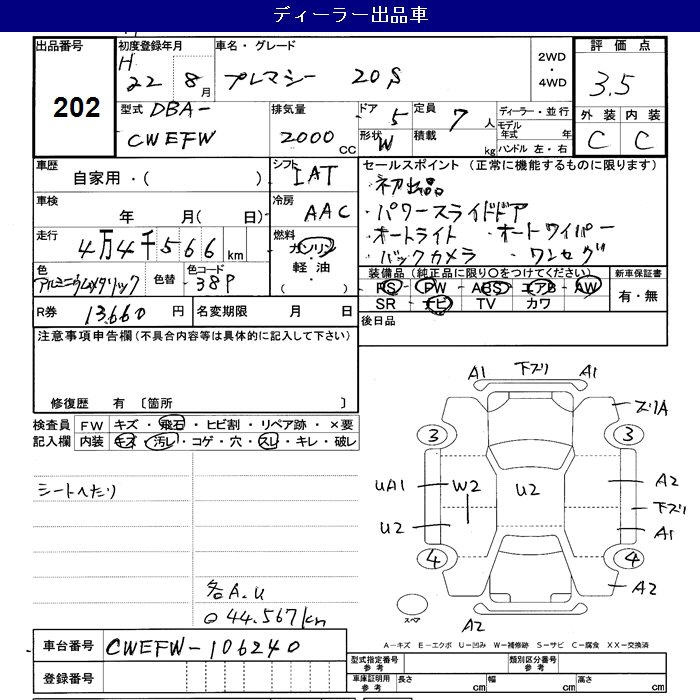 ディーラー出品車
出品番号 初度登録年月 車名・グレード 評価点
202
H 22 8月 プレマシー 20S
2WD
・
4WD
3.5
型式 DBA-
CWEFW
排気量
2000 CC
ドア 5 定員 7人
形状 W 積載 kg
ディーラー・並行
モデル年式 年
ハンドル 左・右
外装 内装
C C
車歴 自家用・( )
シフト IAT
セールスポイント (正常に機能するものに限ります)
・初出品
・パワースライドドア
・オートライト ・オートワイパー
・バックカメラ ・ワンセグ
車検 年 月( 日)
冷房 AAC
走行 4万4千566km
燃料 ガソリン
軽油
( )
色 アルミニウムメタリック 色替 色コード 38P
装備品 (純正品に限り○をつけてください) 新車保証書
PS PW ABS エアB AW 有・無
SR ナビ TV カワ
R券 13,660円 名変期限 月 日
後日品
注意事項申告欄(不具合内容等は具体的に記入して下さい)
修復歴 有 〔箇所 〕
検査員 FW キズ・飛石・ヒビ割・リペア跡・×要
記入欄 内装 キズ・汚レ・コゲ・穴・スレ・キレ・破レ
シートへたり
各A.U
44.567km
A1 下ズリ A1
ズリA
3 3
UA1 W2 U2 A2
下ズリ
U2 A1
4 4
A2
スペア
A2
A-キズ E-エクボ U-凹み W-補修跡 S-サビ C-腐食 XX-交換済
車台番号 CWEFW-106240
登録番号
型式指定番号 参考 類別区分番号 参考
車庫証明用 参考 長さ cm 幅 cm 高さ cm